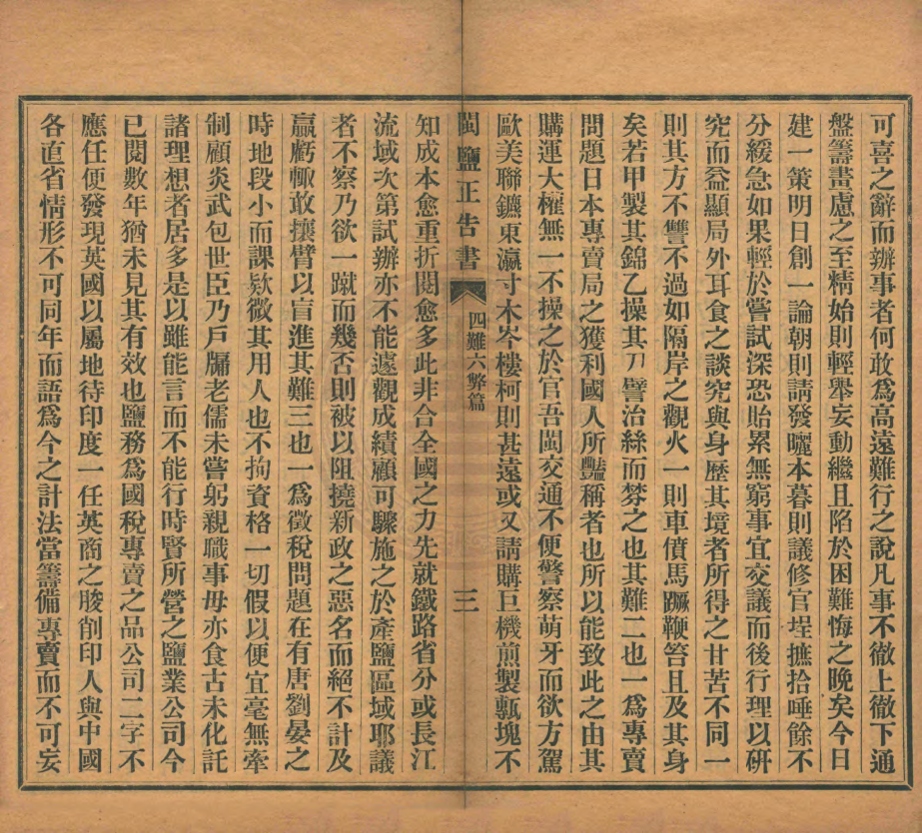 可喜之辭而辦事者何敢爲高遠難行之說凡事不徹上徹下通
盤籌畫慮之至精始則輕舉妄動繼且陷於困難悔之晚矣今日
建一策明日創一論朝則請發曬本暮則議修官埕摭拾唾餘不
分緩急如果輕於嘗試深恐貽累無窮事宜交議而後行理以硏
究而益顯局外耳食之談究與身歷其境者所得之甘苦不同一
則其方不讐不過如隔岸之觀火一則車僨馬蹶鞭笞且及其身
矣若甲製其錦乙操其刀譬治絲而棼之也其難二也一爲專賣
問題日本專賣局之獲利國人所豔稱者也所以能致此之由其
購運大權無一不操之於官吾閩交通不便警察萌牙而欲方駕
歐美聯鑣東瀛寸木岑樓柯則甚遠或又請購巨機煎製甎塊不
閩鹽正告書 四難六弊篇 三
知成本愈重折閱愈多此非合全國之力先就鐵路省分或長江
流域次第試辦亦不能遽觀成績顧可驟施之於產鹽區域耶議
者不察乃欲一蹴而幾否則被以阻撓新政之惡名而絕不計及
贏虧輙敢攘臂以盲進其難三也一爲徵稅問題在有唐劉晏之
時地段小而課欵微其用人也不拘資格一切假以便宜毫無牽
制顧炎武包世臣乃戶牖老儒未嘗躬親職事毋亦食古未化託
諸理想者居多是以雖能言而不能行時賢所營之鹽業公司今
已閱數年猶未見其有效也鹽務爲國稅專賣之品公司二字不
應任便發現英國以屬地待印度一任英商之朘削印人與中國
各直省情形不可同年而語爲今之計法當籌備專賣而不可妄